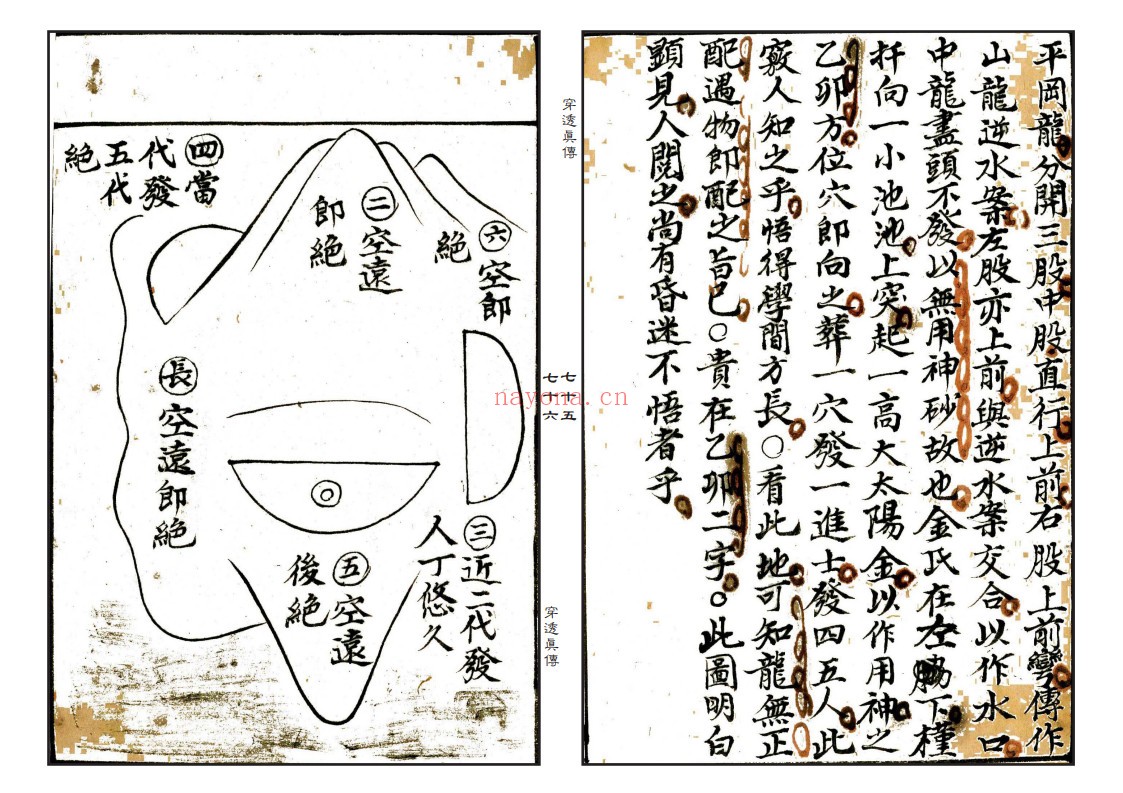 平岡龍分開三股中股直行上前右股上前彎傳作
山龍逆水案左股亦上前與逆水案交合以作水口
中龍盡頭不發以無用神砂故也金氏在左下槿
扦向一小池池上突起一高大太陽金以作用神之
乙卯方位穴即向之葬一穴發一進士發四五人此
竅人知之乎悟得學間方長○看此地可知龍無正
配遇物即配之旨已○貴在乙卯二字○此圖明白
顕見人閱之尚有昏迷不悟者乎
穿透眞傳
七十五
七十六
穿透眞傳
nayona.cn
六空即
絕
二空遠
即絕
四當
代發
五代
絕
三近二代發
人丁悠久
五空遠
後絕
長空遠即絕